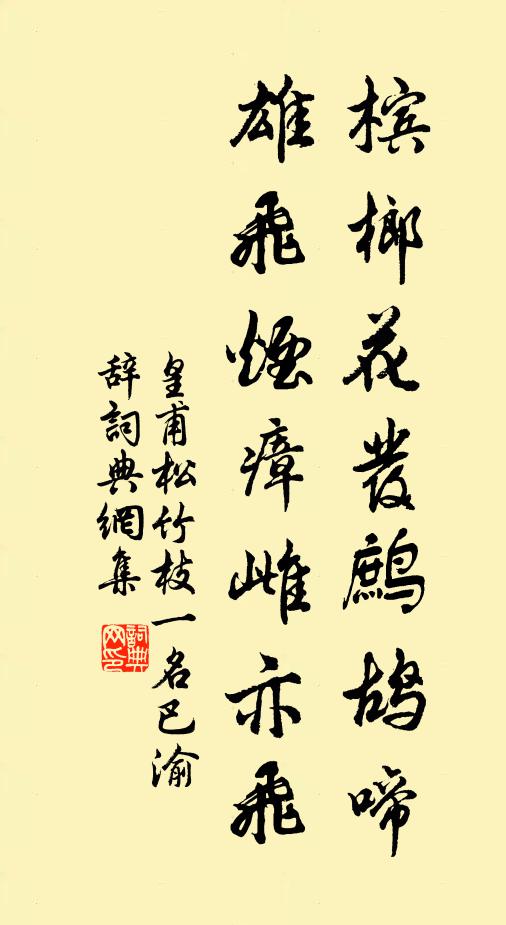 檳榔花發鷓鴣啼
雄飛煙瘴雌亦飛
皇甫松竹枝一名巴渝
辭詞典網集
詞典
網印